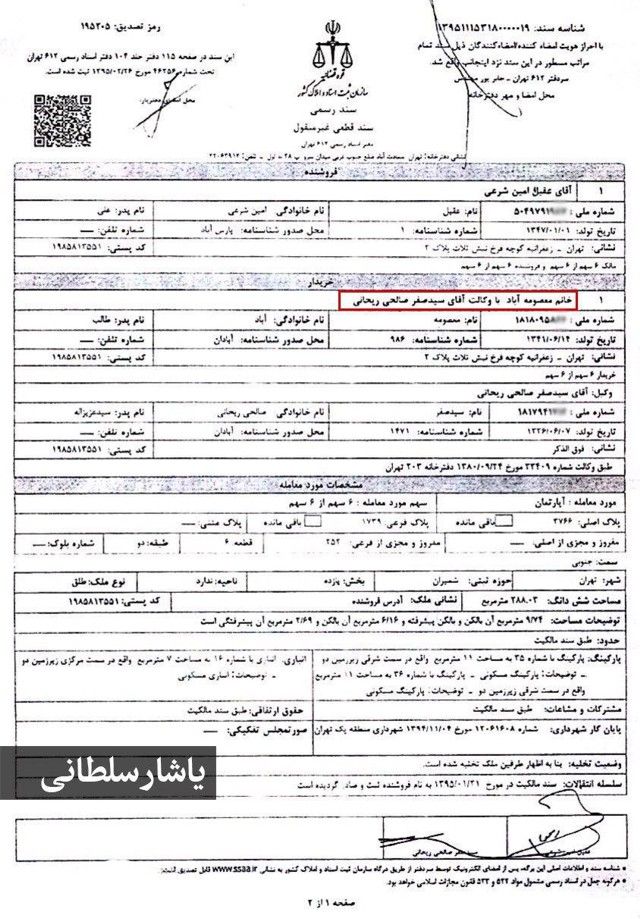 رمز تصدیق: ۱۹۵۳۰۵
شناسه سند: ۱۳۹۵۱۱۱۵۳۱۸۰۰۰۰۰۱۹
با احراز هویت امضاء کننده/امضاءکنندگان ذیل سند تمام
مراتب مسطور در این سند نزد اینجانب واقع شد.
سردفتر ۶۱۲ تهران -
محل امضا و مهر دفترخانه
این سند در صفحه ۱۱۵ دفتر جلد ۱۰۴ دفتر اسناد رسمی ۶۱۲ تهران
تحت شماره ۴۶۲۵۶ مورخ ۱۳۹۵/۰۲/۲۶ ثبت شده است.
محل امضای دفتریار:
قوه قضائیه
سازمان ثبت اسناد و املاک کشور
سند رسمی
سند قطعی غیرمنقول
دفتر اسناد رسمی ۶۱۲ تهران
فروشنده
۱ آقای عقیل امین شرعی
شماره ملی: ۵۰۴۹۷۹۱۹ نام: عقیل نام خانوادگی: امین شرعی نام پدر: علی
تاریخ تولد: ۱۳۴۷/۰۱/۰۱ شماره شناسنامه: ۱ محل صدور شناسنامه: پارس آباد شماره تلفن: —
نشانی: تهران - زعفرانیه کوچه فرخ نبش ثلاث پلاک ۲ کد پستی: ۱۹۸۵۸۱۳۵۵۱
مالک ۶ سهم از ۶ سهم و فروشنده ۶ سهم از ۶ سهم
خریدار
۱ خانم معصومه آباد با وکالت آقای سیدصفر صالحی ریحانی
شماره ملی: ۱۸۱۸۰۹۵۸ نام: معصومه نام خانوادگی: آباد نام پدر: طالب
تاریخ تولد: ۱۳۴۱/۰۶/۱۴ شماره شناسنامه: ۹۸۶ محل صدور شناسنامه: آبادان شماره تلفن: —
نشانی: تهران - زعفرانیه کوچه فرخ نبش ثلاث پلاک ۲ کد پستی: ۱۹۸۵۸۱۳۵۵۱
خریدار ۶ سهم از ۶ سهم
وکیل: آقای سیدصفر صالحی ریحانی
شماره ملی: ۱۸۱۷۹۴۱ نام: سیدصفر نام خانوادگی: صالحی ریحانی نام پدر: سیدعزیزاله
تاریخ تولد: ۱۳۲۶/۰۶/۰۷ شماره شناسنامه: ۱۴۷۱ محل صدور شناسنامه: آبادان شماره تلفن: —
نشانی: فوق الذکر کد پستی: ۱۹۸۵۸۱۳۵۵۱
طبق وکالت شماره ۳۳۴۰۹ مورخ ۱۳۸۰/۰۹/۲۴ دفترخانه ۲۰۳ تهران
مشخصات مورد معامله
مورد معامله: آپارتمان سهم مورد معامله: ۶ سهم از ۶ سهم
پلاک اصلی: ۳۷۶۶ باقی مانده پلاک فرعی: ۱۷۳۹ باقی مانده پلاک متنی: —
مفروز و مجزی از اصلی: — مفروز و مجزی از فرعی: ۲۵۲ قطعه ۶ طبقه: دو شماره بلوک: —
سمت: جنوبی
شهر: تهران حوزه ثبتی: شمیران بخش: یازده ناحیه: ندارد نوع ملک: طلق
مساحت شش دانگ: ۲۸۸.۰۳ مترمربع نشانی ملک: آدرس فروشنده کد پستی: ۱۹۸۵۸۱۳۵۵۱
توضیحات مساحت: ۹/۷۴ مترمربع آن بالکن و بالکن پیشرفته و ۶/۱۶ مترمربع آن بالکن و ۲/۶۹ مترمربع آن پیشرفتگی است
حدود: طبق سند مالکیت
پارکینگ: پارکینگ با شماره ۳۵ به مساحت ۱۱ مترمربع واقع در سمت شرقی زیرزمین دو
- توضیحات: پارکینگ مسکونی - پارکینگ با شماره ۳۶ به مساحت ۱۱ مترمربع
واقع در سمت شرقی زیرزمین دو - توضیحات: پارکینگ مسکونی
انباری: انباری با شماره ۱۶ به مساحت ۷ مترمربع واقع در سمت مرکزی زیرزمین دو
- توضیحات: انباری مسکونی
مشترکات و مشاعات: طبق سند مالکیت حقوق ارتفاقی: طبق سند مالکیت
پایان کار شهرداری: شماره ۱۲۰۶۱۶۰۸ مورخ ۱۳۹۴/۱۱/۰۴ شهرداری منطقه یک تهران صورتمجلس تفکیکی: —
وضعیت تخلیه: بنا به اظهار طرفین ملک تخلیه شده است.
سلسله انتقالات: سند مالکیت در مورخ ۱۳۹۵/۰۱/۳۱ به نام فروشنده ثبت و صادر گردیده است
یاشار سلطانی
سیدصفر صالحی ریحانی
* شناسه سند و اطلاعات اصلی این برگه، پس از امضای الکترونیک توسط سردفتر از طریق درگاه سازمان ثبت اسناد و املاک کشور به نشانی www.ssaa.ir قابل تصدیق است.
* هرگونه جعل در اسناد رسمی مشمول مواد ۵۳۲ و ۵۳۳ قانون مجازات اسلامی خواهد بود.
صفحه ۱ از ۲